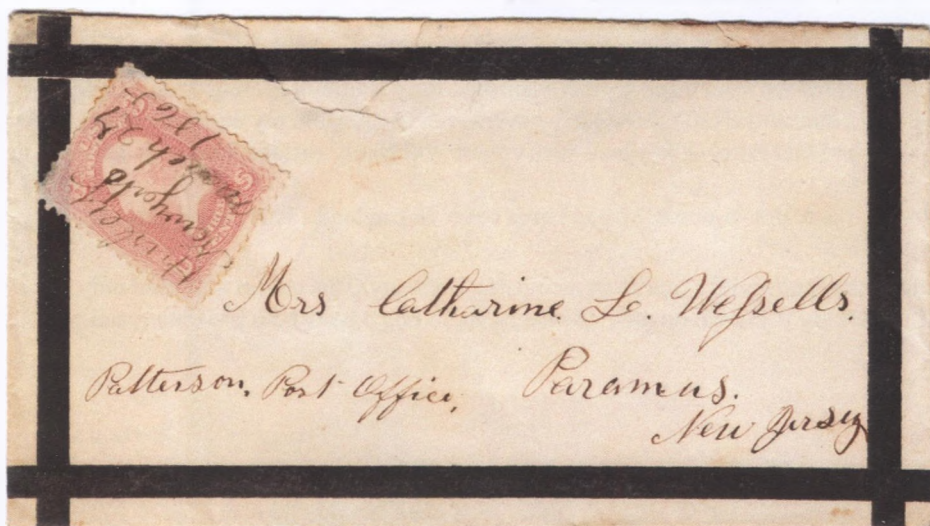 March 27
1865
Mrs Catharine L. Wessells.
Patterson, Post Office, Paramus.
New Jersey